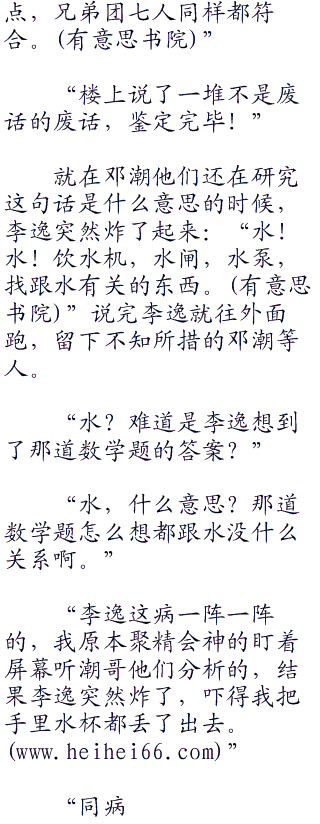 点，兄弟团七人同样都符
合。(有意思书院)”
“楼上说了一堆不是废
话的废话，鉴定完毕！”
就在邓潮他们还在研究
这句话是什么意思的时候，
李逸突然炸了起来：“水！
水！饮水机，水闸，水泵，
找跟水有关的东西。(有意思
书院)”说完李逸就往外面
跑，留下不知所措的邓潮等
人。
“水？难道是李逸想到
了那道数学题的答案？”
“水，什么意思？那道
数学题怎么想都跟水没什么
关系啊。”
“李逸这病一阵一阵
的，我原本聚精会神的盯着
屏幕听潮哥他们分析的，结
果李逸突然炸了，吓得我把
手里水杯都丢了出去。
(www.heihei66.com)”
“同病